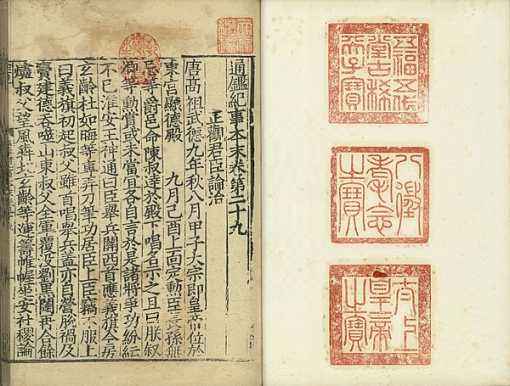 通鑑紀事本末卷第二十九
正觀君臣論治
唐高祖武德九年秋八月甲子太宗即皇帝位於
東宮顯德殿 九月己酉上面定勳臣長孫無
忌等爵邑命陳叔達於殿下唱名示之且曰朕叙
卿等勳賞或未當宜各自言於是諸將爭功紛紜
不已淮安王神通曰臣舉兵關西首應義旗今房
玄齡杜如晦等專弄刀筆功居臣上臣竊不服上
曰義旗初起叔父雖首唱舉兵蓋亦自營脫禍及
竇建德吞噬山東叔父全軍覆没劉黑闥再合餘
燼叔父望風奔北玄齡等運籌帷幄坐安社稷論
五福五代堂古稀天子寶
八徵耄念之寶
太上皇帝之寶